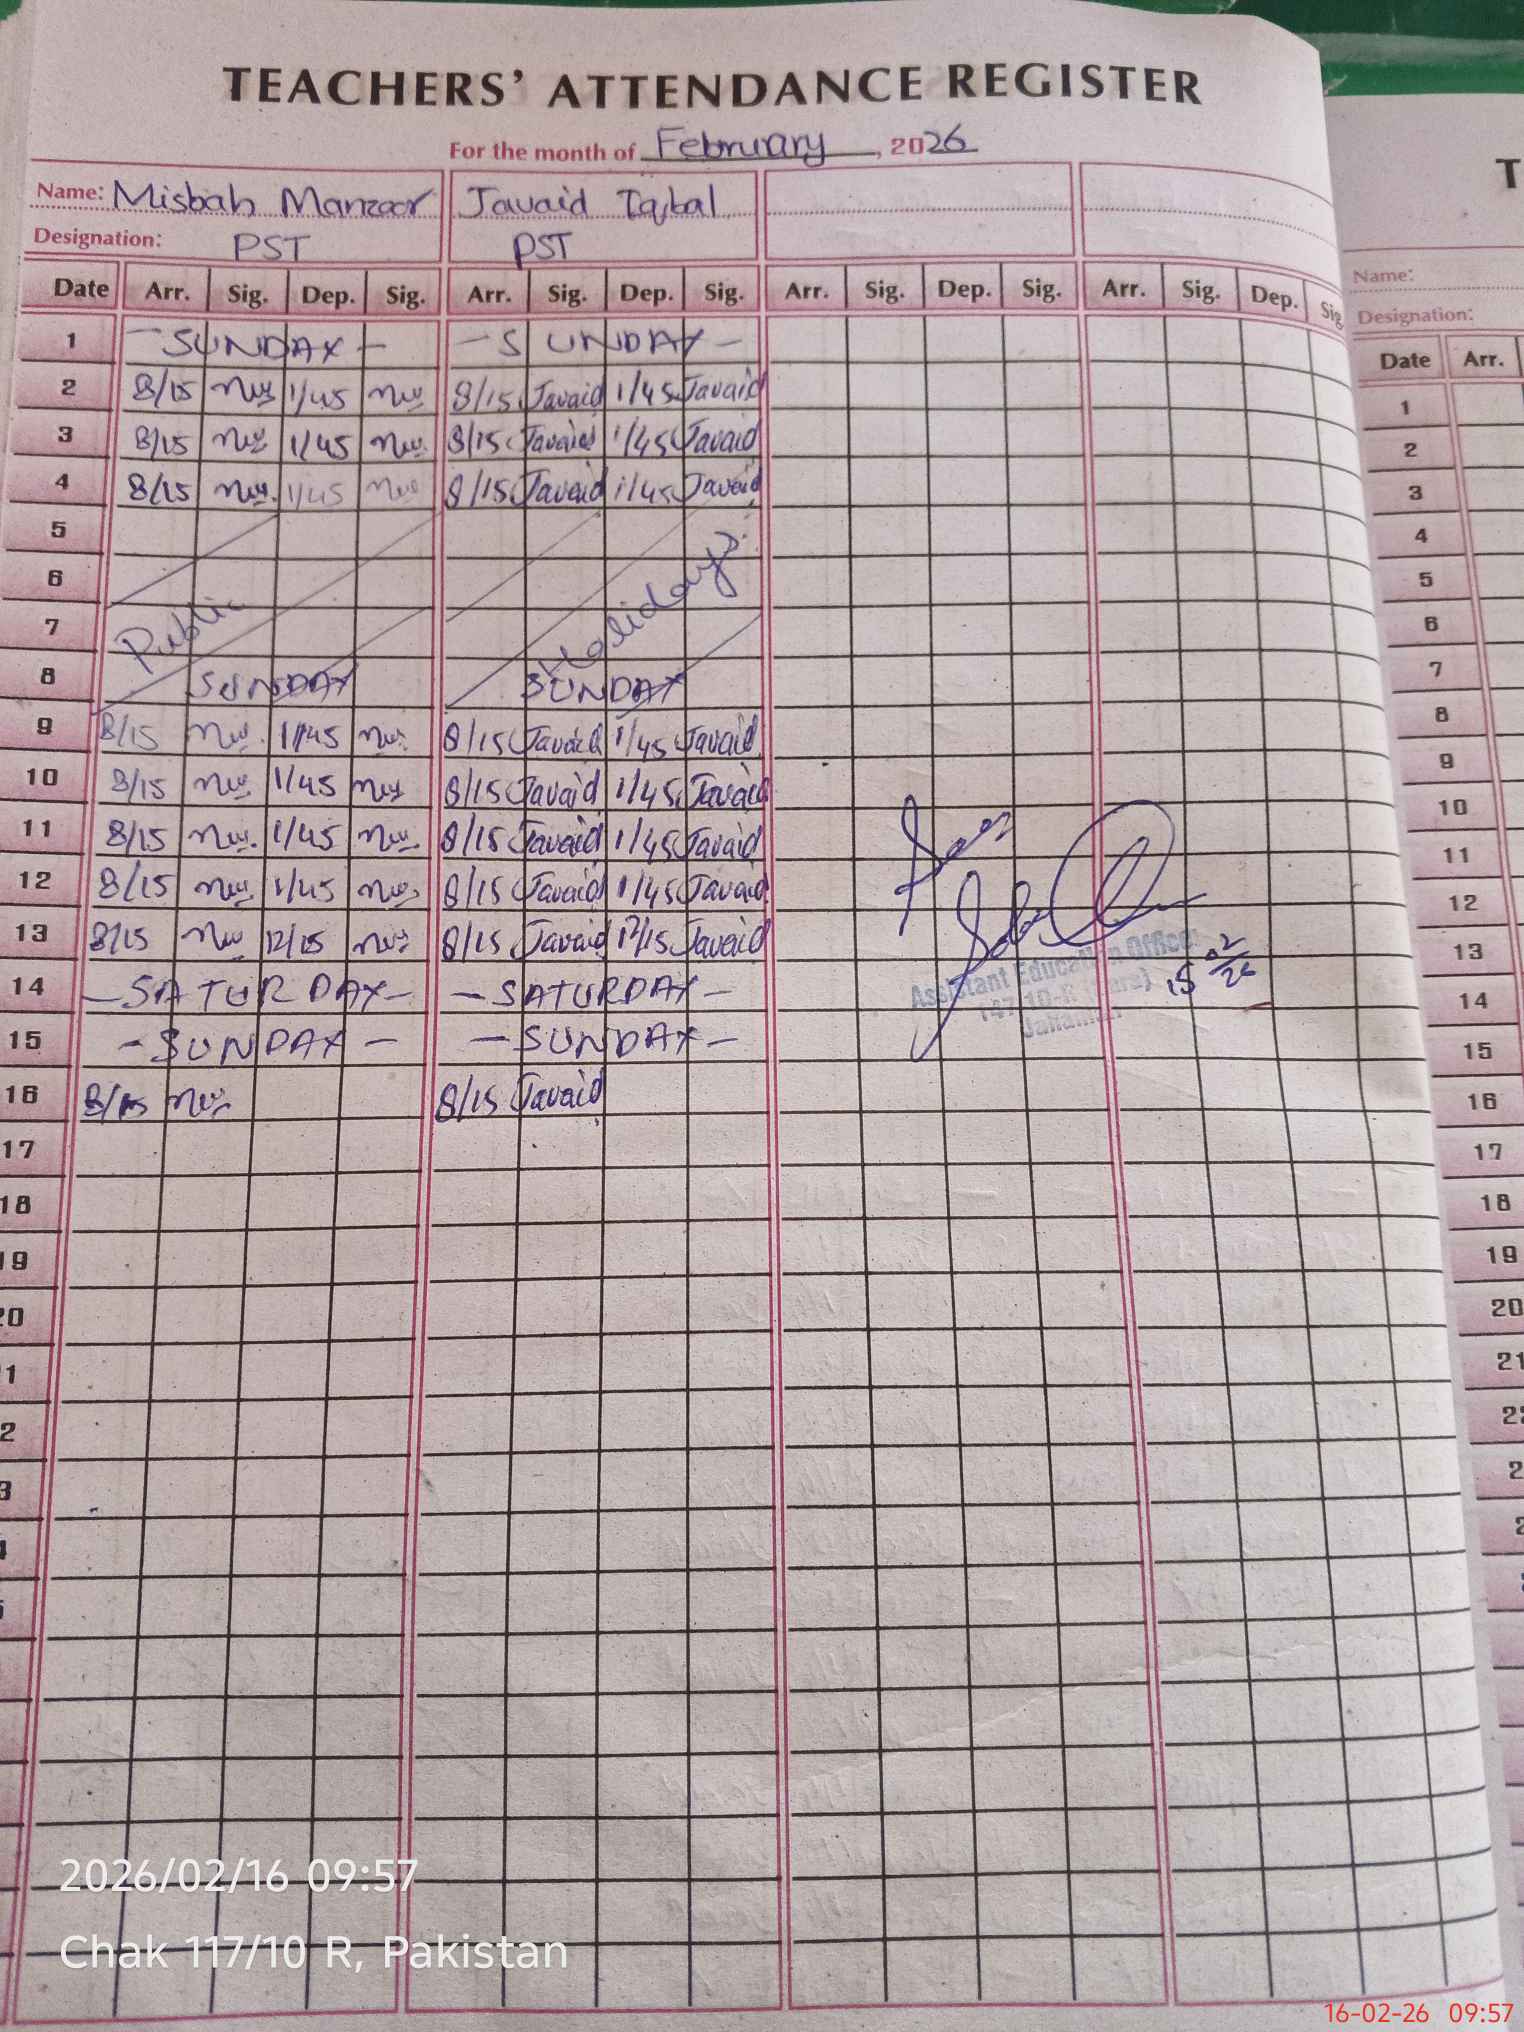 TEACHERS' ATTENDANCE REGISTER
For the month of February, 2026
Name: Misbah Manzoor Javaid Iqbal
Designation: PST PST
Date Arr. Sig. Dep. Sig. Arr. Sig. Dep. Sig. Arr. Sig. Dep. Sig. Arr. Sig. Dep. Sig.
1 -SUNDAY- -SUNDAY-
2 8/15 1/45 8/15 Javaid 1/45 Javaid
3 8/15 1/45 8/15 Javaid 1/45 Javaid
4 8/15 1/45 8/15 Javaid 1/45 Javaid
5
6
7 Public Holidays
8 SUNDAY SUNDAY
9 8/15 1/45 8/15 Javaid 1/45 Javaid
10 8/15 1/45 8/15 Javaid 1/45 Javaid
11 8/15 1/45 8/15 Javaid 1/45 Javaid
12 8/15 1/45 8/15 Javaid 1/45 Javaid
13 8/15 12/15 8/15 Javaid 12/15 Javaid
14 -SATURDAY- -SATURDAY-
15 -SUNDAY- -SUNDAY-
16 8/15 8/15 Javaid
17
18
19
20
Assistant Education Officer
15 02/26
T
Name:
Designation:
Date Arr.
1
2
3
4
5
6
7
8
9
10
11
12
13
14
15
16
17
18
19
20
21
2026/02/16 09:57
Chak 117/10 R, Pakistan
16-02-26 09:57